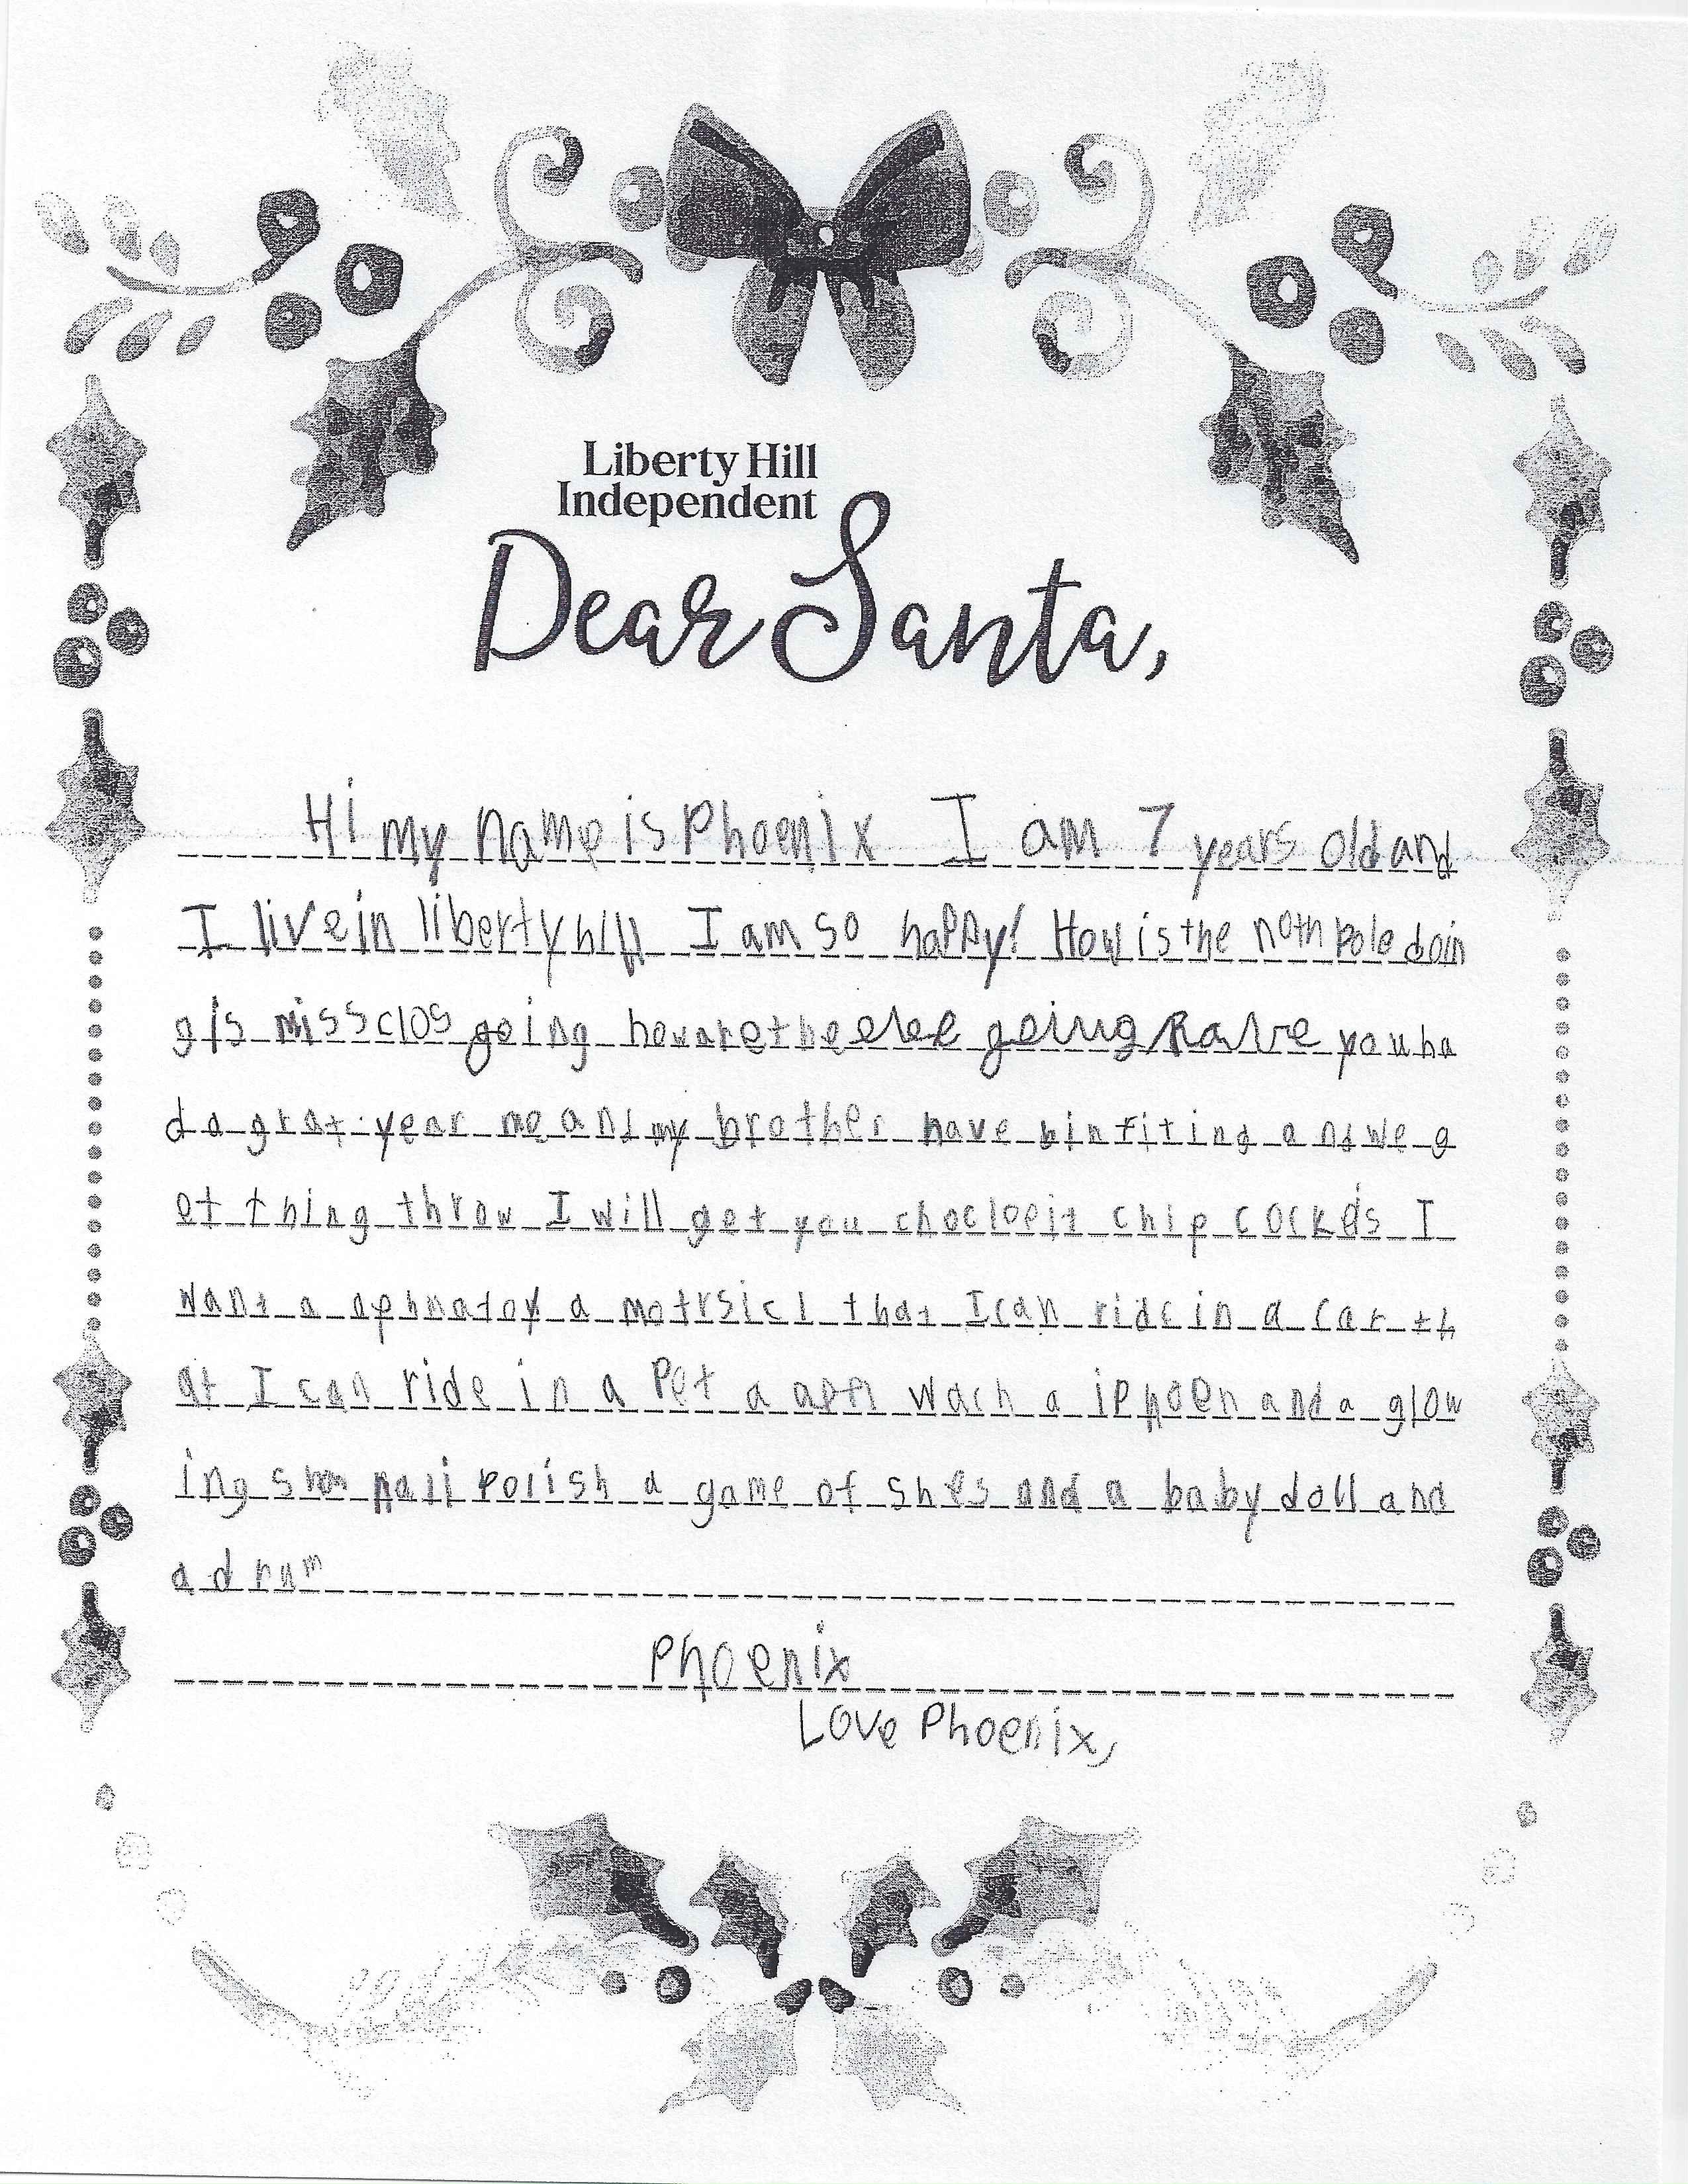 Liberty Hill
Independent
Dear Santa,
Hi my name is Phoenix I am 7 years old and
I live in liberty hill I am so happy! How is the noth pole doin
g is miss clos going how are the elel going have you ha
d a grat year me and my brother have bin fiting and we g
et thing throw I will get you chocloeit chip cockes I
want a a motrsicl that I can ride in a car th
at I can ride in a Pet a wach a iphoen and a glow
ing nail polish a game of shes and a baby doll and
a drum
Phoenix
Love Phoenix,